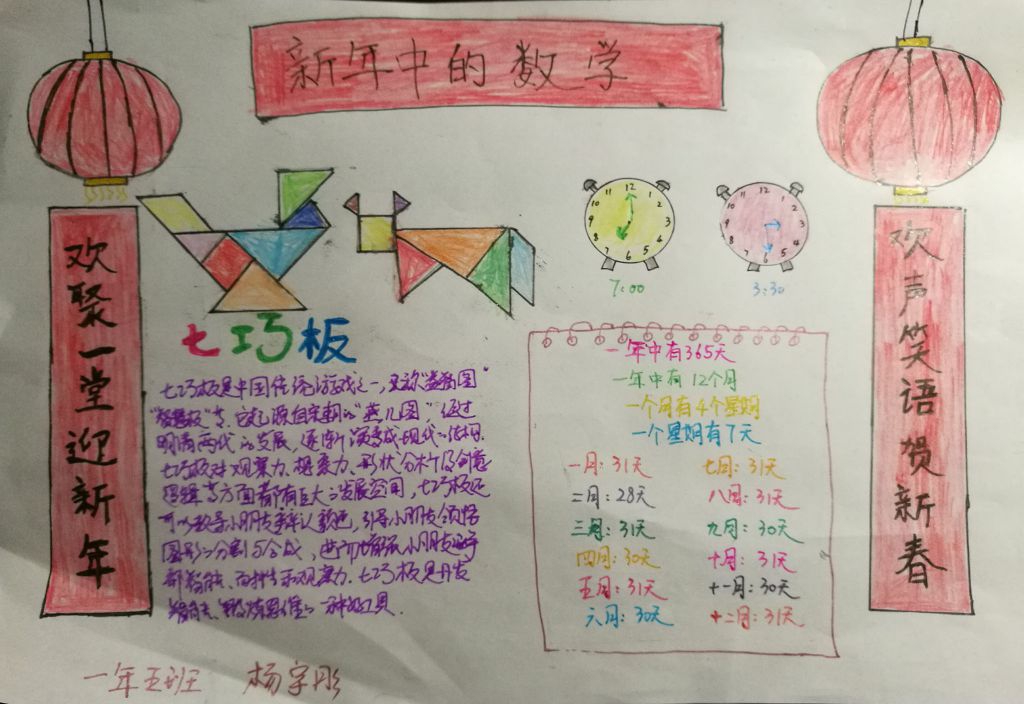 新年中的数学
欢聚一堂迎新年
欢声笑语贺新春
12
1
2
3
4
5
6
7
8
9
10
11
7:00
12
1
2
3
4
5
6
7
8
9
10
11
3:30
七巧板
七巧板是中国传统游戏之一,又称"益智图"
"智慧板"等.它起源自宋朝的"燕几图"经过
明清两代的发展,逐渐演变成现代的结构.
七巧板对观察力、想象力、形状分析及创意
逻辑等方面都有巨大的发展益用,七巧板还
可以教导小朋友辨认颜色,引导小朋友领悟
图形的分割与合成,
观察力.七巧板是开发
一种好工具.
一年中有365天
一年中有12个月
一个月有4个星期
一个星期有7天
一月:31天 七月:31天
二月:28天 八月:31天
三月:31天 九月:30天
四月:30天 十月:31天
五月:31天 十一月:30天
六月:30天 十二月:31天
一年五班 杨宇彤